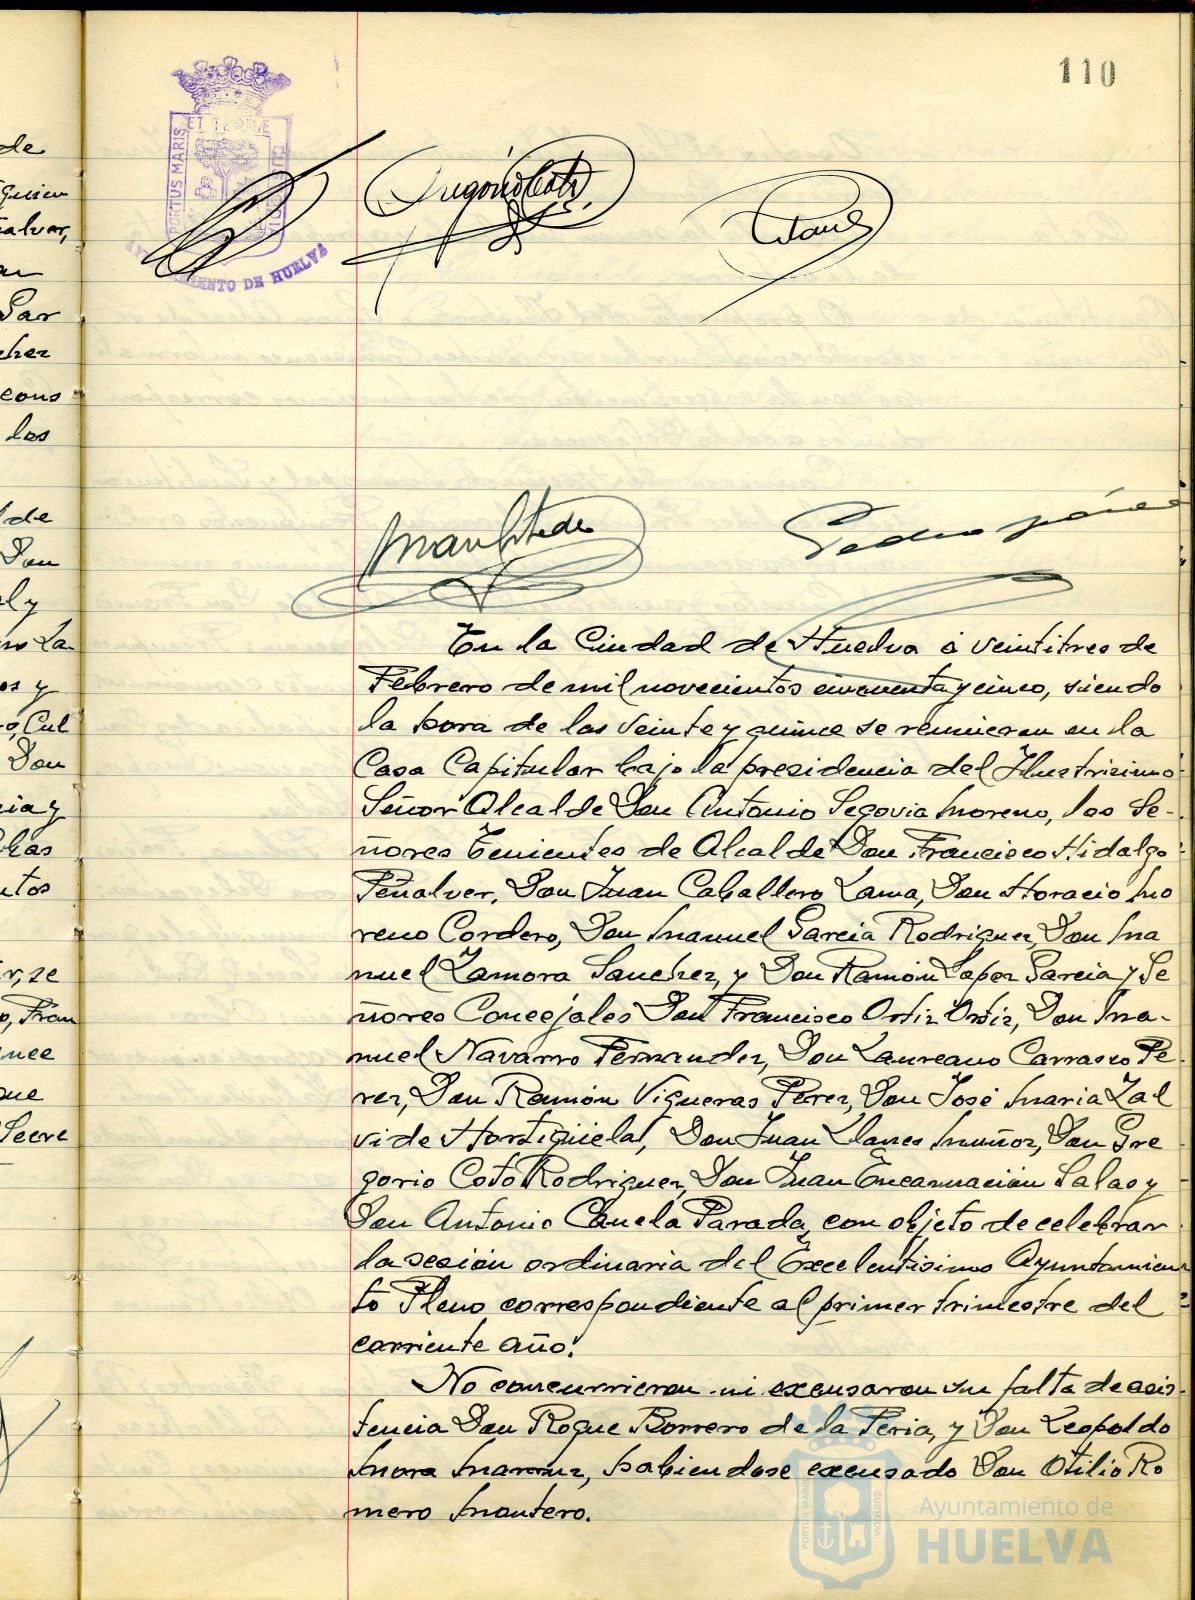 110
PORTUS MARIS
AYUNTAMIENTO DE HUELVA
de
Par
cons
los
de
Don
y
Don
se
que
Secre
Pedro
En la Ciudad de Huelva á veintitres de
Febrero de mil novecientos cincuenta y cinco, siendo
la hora de las veinte y quince se reunieron en la
Casa Capitular bajo la presidencia del Ilustrisimo
Señor Alcalde Don Antonio Segovia Moreno, los Se-
ñores Tenientes de Alcalde Don Francisco Hidalgo
Peñalver, Don Juan Caballero Lama, Don Horacio Mo
reno Cordero, Don Manuel Garcia Rodriguez, Don Ma
nuel Zamora Sanchez, y Don Ramón Lopez Garcia y Se
ñores Concejales Don Francisco Ortiz Ortiz, Don Ma-
nuel Navarro Fernandez, Don Laureano Carrasco Pe
rez, Don Ramón Vigueras Perez, Don José Maria Zal
vide Hortigüela, Don Juan Llanes Muñoz, Don Gre
gorio Coto Rodriguez, Don Juan Encarnación Salas y
Don Antonio Canela Parada, con objeto de celebrar
la sesión ordinaria del Excelentisimo Ayuntamien
to Pleno correspondiente al primer trimestre del
corriente año.
No concurrieron ni excusaron su falta de asis-
tencia Don Roque Borrero de la Feria, y Don Leopoldo
Mora, habiendose excusado Don Otilio Ro
mero Montero.
Ayuntamiento de
HUELVA